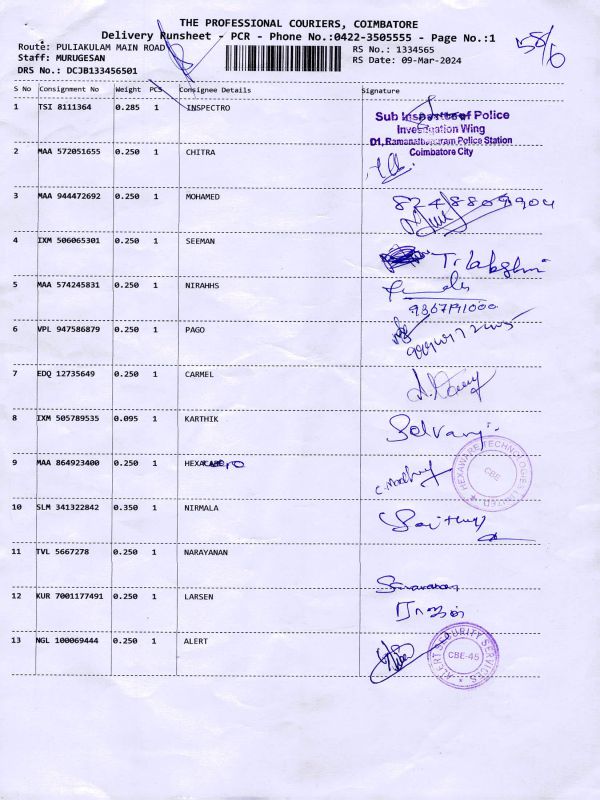 THE PROFESSIONAL COURIERS, COIMBATORE
Delivery Runsheet - PCR - Phone No.:0422-3505555 - Page No.:1
Route: PULIAKULAM MAIN ROAD
RS No.: 1334565
58/6
Staff: MURUGESAN
RS Date: 09-Mar-2024
DRS No.: DCJB133456501
S No Consignment No Weight PCS Consignee Details Signature
1 TSI 8111364 0.285 1 INSPECTRO
Sub Inspector of Police
Investigation Wing
D1, Ramanathapuram Police Station
Coimbatore City
2 MAA 572051655 0.250 1 CHITRA
3 MAA 944472692 0.250 1 MOHAMED
4 IXM 506065301 0.250 1 SEEMAN
Trlakshmi
5 MAA 574245831 0.250 1 NIRAHHS
6 VPL 947586879 0.250 1 PAGO
7 EDQ 12735649 0.250 1 CARMEL
8 IXM 505789535 0.095 1 KARTHIK
Selvaraj
9 MAA 864923400 0.250 1 HEXA
HEXAWARE TECHNOLOGIES LIMITED
CBE
10 SLM 341322842 0.350 1 NIRMALA
11 TVL 5667278 0.250 1 NARAYANAN
12 KUR 7001177491 0.250 1 LARSEN
13 NGL 100069444 0.250 1 ALERT
ALERT SECURITY SERVICES
CBE-45